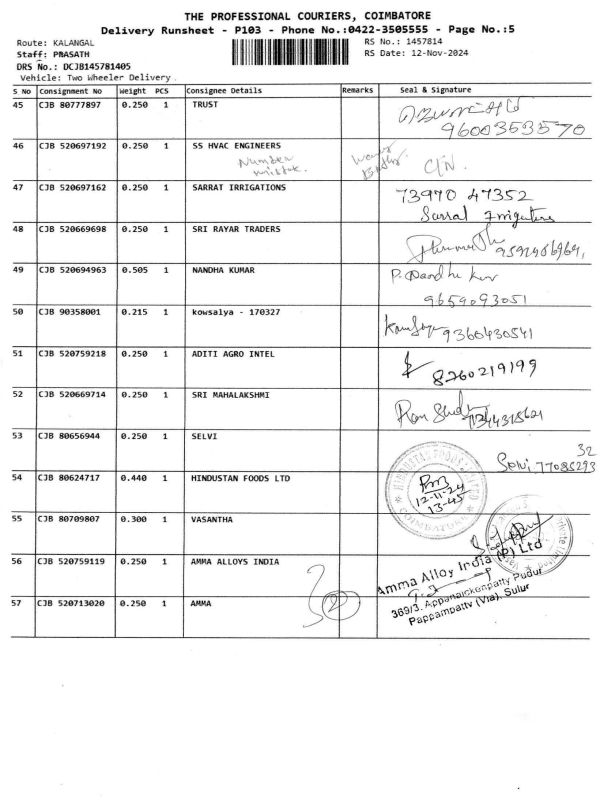 THE PROFESSIONAL COURIERS, COIMBATORE
Delivery Runsheet - P103 - Phone No.:0422-3505555 - Page No.:5
Route: KALANGAL
RS No.: 1457814
Staff: PRASATH
RS Date: 12-Nov-2024
DRS No.: DCJB145781405
Vehicle: Two Wheeler Delivery .
S No Consignment No Weight PCS Consignee Details Remarks Seal & Signature
45 CJB 80777897 0.250 1 TRUST
9600353570
46 CJB 520697192 0.250 1 SS HVAC ENGINEERS C/N.
Number
47 CJB 520697162 0.250 1 SARRAT IRRIGATIONS 73970 47352
48 CJB 520669698 0.250 1 SRI RAYAR TRADERS
49 CJB 520694963 0.505 1 NANDHA KUMAR
9659093051
50 CJB 90358001 0.215 1 kowsalya - 170327 9360430541
51 CJB 520759218 0.250 1 ADITI AGRO INTEL 8760219199
52 CJB 520669714 0.250 1 SRI MAHALAKSHMI
53 CJB 80656944 0.250 1 SELVI 32
Selvi 77085293
54 CJB 80624717 0.440 1 HINDUSTAN FOODS LTD HINDUSTAN FOODS LIMITED
12-11-24
13-45
COIMBATORE
55 CJB 80709807 0.300 1 VASANTHA
56 CJB 520759119 0.250 1 AMMA ALLOYS INDIA
Amma Alloy India (P) Ltd
57 CJB 520713020 0.250 1 AMMA
369/3, Appanaickenpatty Pudur
Pappampatty (Via), Sulur